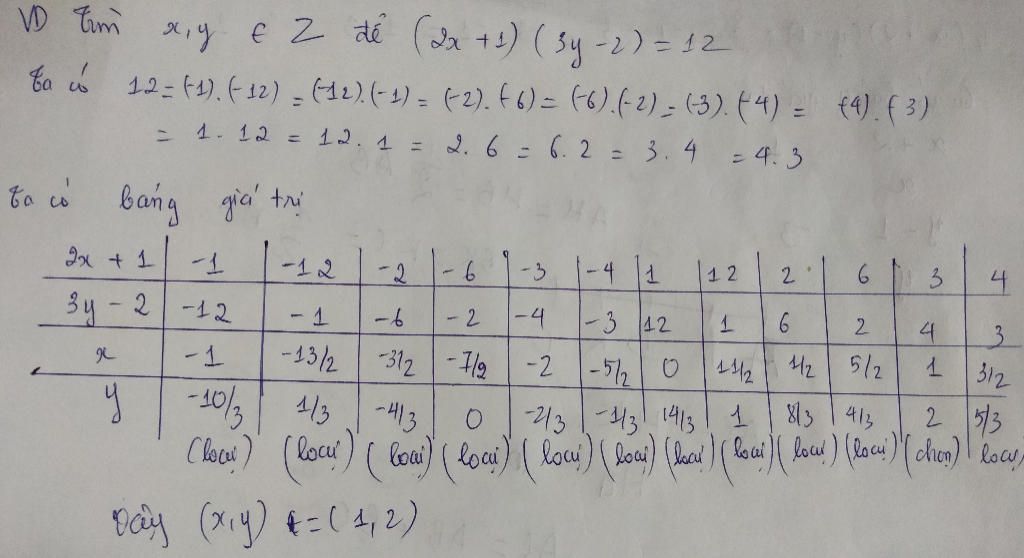 VD Tìm x, y ∈ Z để (2x + 1)(3y - 2) = 12
Ta có 12 = (-1).(-12) = (-12).(-1) = (-2).(-6) = (-6).(-2) = (-3).(-4) = (-4).(-3)
= 1. 12 = 12. 1 = 2. 6 = 6. 2 = 3. 4 = 4. 3
Ta có bảng giá trị
2x + 1 -1 -12 -2 -6 -3 -4 1 12 2 6 3 4
3y - 2 -12 -1 -6 -2 -4 -3 12 1 6 2 4 3
x -1 -13/2 -3/2 -7/2 -2 -5/2 0 11/2 1/2 5/2 1 3/2
y -10/3 1/3 -4/3 0 -2/3 -1/3 14/3 1 8/3 4/3 2 5/3
(loại) (loại) (loại) (loại) (loại) (loại) (loại) (loại) (loại) (loại) (chọn) loại
Vậy (x,y) = (1, 2)